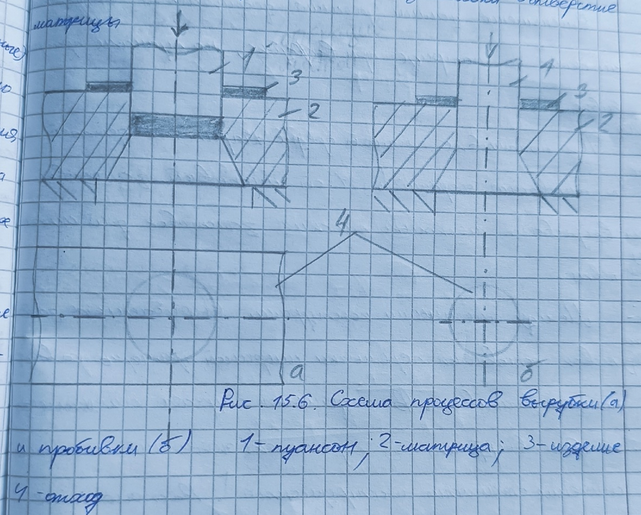 матрицы
отверстие
1
3
2
1
3
2
4
а
б
Рис 15.6. Схема процессов вырубки (а)
и пробивки (б) 1-пуансон; 2-матрица; 3-изделие
4-отход